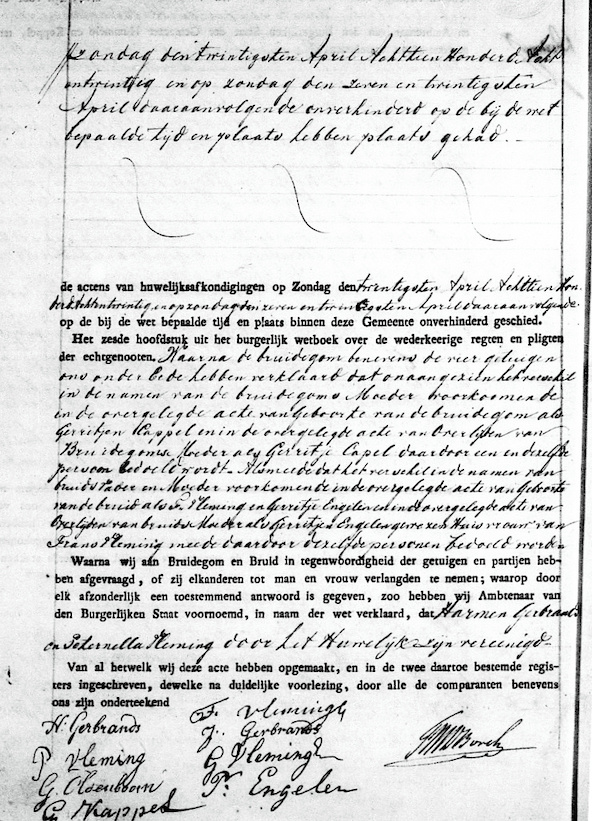 zondag den twintigsten April Achttien Honderd Acht
entwintig en op zondag den zeven en twintigsten
April daaraanvolgende onverhinderd op de bij de wet
bepaalde tijd en plaats hebben plaats gehad.
de actens van huwelijksafkondigingen op Zondag den twintigsten April Achttien Hon-
derd Achtentwintig, en op zondag den zeven en twintigsten April daaraanvolgende
op de bij de wet bepaalde tijd en plaats binnen deze Gemeente onverhinderd geschied.
Het zesde hoofdstuk uit het burgerlijk wetboek over de wederkeerige regten en pligten
der echtgenooten. Waarna de bruidegom benevens de vier getuigen
ons onder Eede hebben verklaard dat onaangezien het verschil
in de namen van de bruidegoms Moeder voorkomende
in de overgelegde acte van Geboorte van de bruidegom als
Gerritjen Kappel en in de overgelegde acte van Overlijden van
Bruidegoms Moeder als Gerritje Capel daardoor een en dezelfde
persoon bedoeld wordt. Alsmede dat het verschil in de namen van
bruids Vader en Moeder voorkomende in de overgelegde acte van Geboorte
van de bruid als F. Vleming en Gerritje Engelen en in de overgelegde acte van
Overlijden van bruids Moeder als Gerritjen Engelen gewezen Huisvrouw van
Frans Vleming mede daardoor dezelfde personen bedoeld worden
Waarna wij aan Bruidegom en Bruid in tegenwoordigheid der getuigen en partijen heb-
ben afgevraagd, of zij elkanderen tot man en vrouw verlangden te nemen; waarop door
elk afzonderlijk een toestemmend antwoord is gegeven, zoo hebben wij Ambtenaar van
den Burgerlijken Staat voornoemd, in naam der wet verklaard, dat Harmen Gerbrands
en Peternella Vleming door het Huwelijk zijn vereenigd.
Van al hetwelk wij deze acte hebben opgemaakt, en in de twee daartoe bestemde regis-
ters ingeschreven, dewelke na duidelijke voorlezing, door alle de comparanten benevens
ons zijn onderteekend
H. Gerbrands
F. Vlemingh
J. Gerbrands
P. Vleming
G Vlemingh
G. Oldenboom
Pr. Engelen
G. Kappel